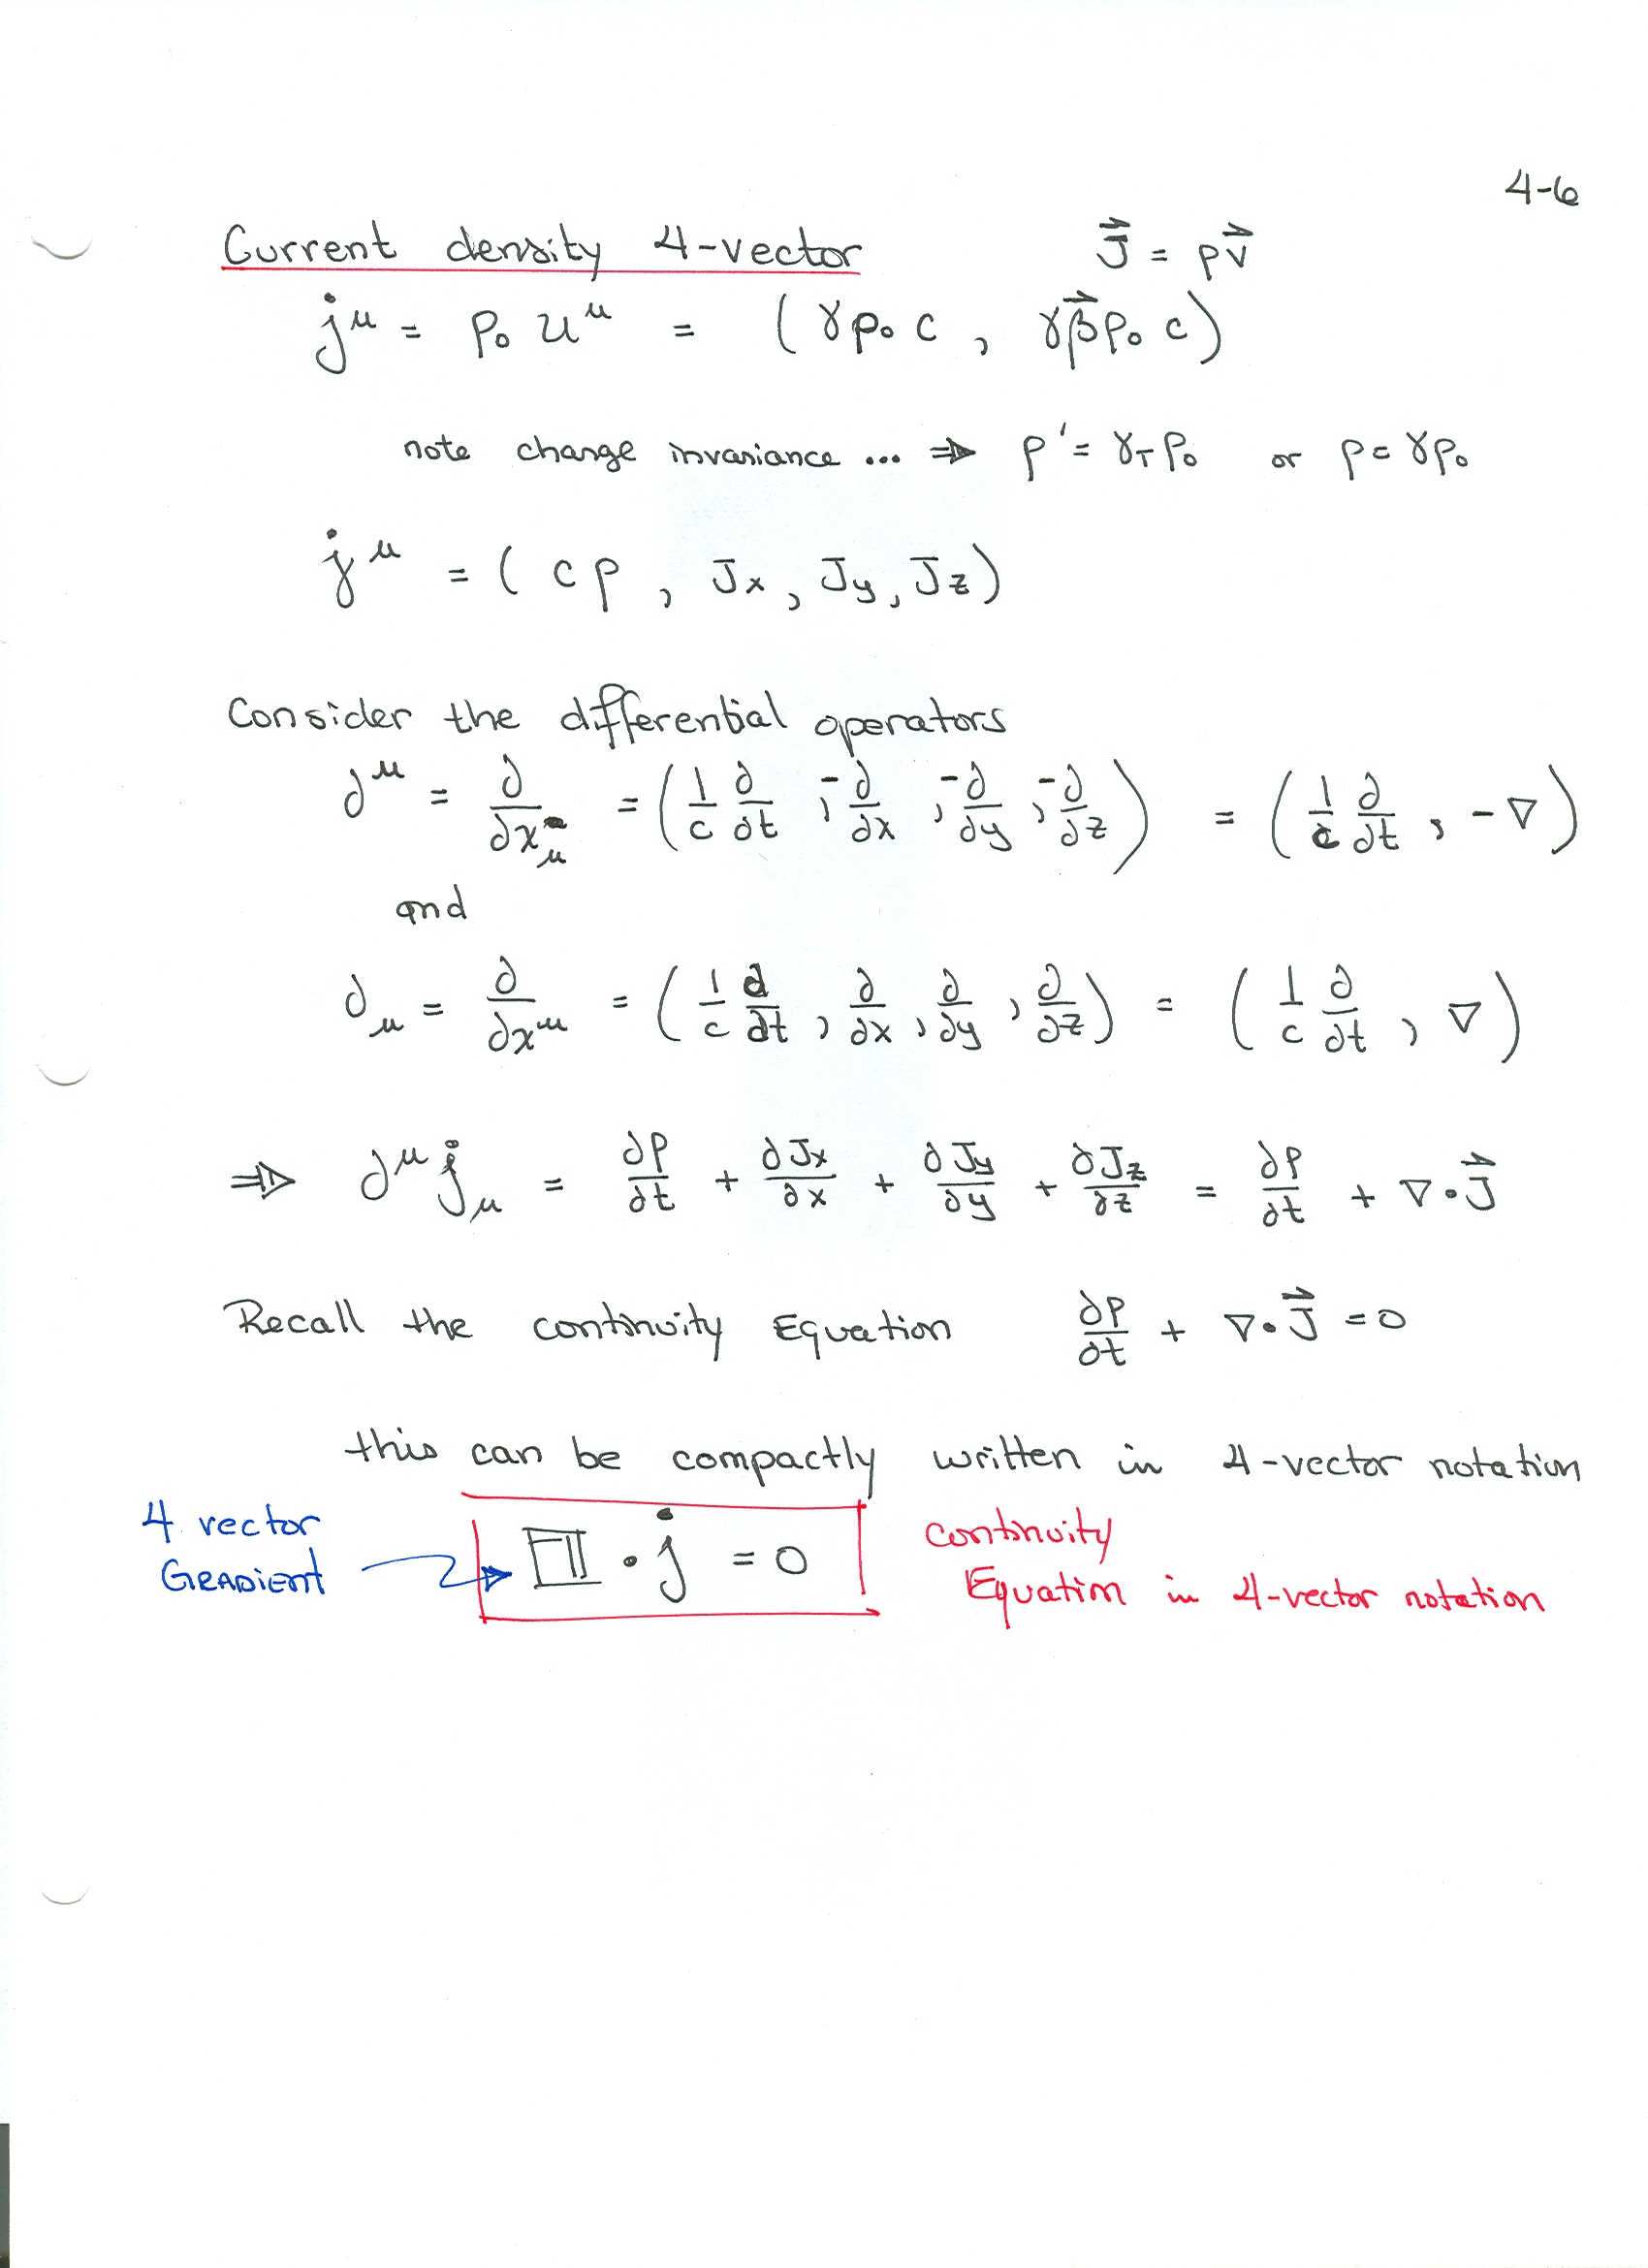 4-6
Current density 4-vector J⃗ = ρv⃗
j^μ = ρ₀ u^μ = (γρ₀ c , γβ⃗ρ₀ c)
note change invariance ... ⇒ ρ' = γ_T ρ₀ or ρ = γρ₀
j^μ = ( cρ , Jx , Jy , Jz )
Consider the differential operators
∂^μ = ∂/∂x_μ = ( 1/c ∂/∂t , -∂/∂x , -∂/∂y , -∂/∂z ) = ( 1/c ∂/∂t , -∇ )
and
∂_μ = ∂/∂x^μ = ( 1/c ∂/∂t , ∂/∂x , ∂/∂y , ∂/∂z ) = ( 1/c ∂/∂t , ∇ )
⇒ ∂^μ j_μ = ∂ρ/∂t + ∂Jx/∂x + ∂Jy/∂y + ∂Jz/∂z = ∂ρ/∂t + ∇·J⃗
Recall the continuity Equation ∂ρ/∂t + ∇·J⃗ = 0
this can be compactly written in 4-vector notation
4 vector
Gradient
□ · j = 0
continuity
Equation in 4-vector notation